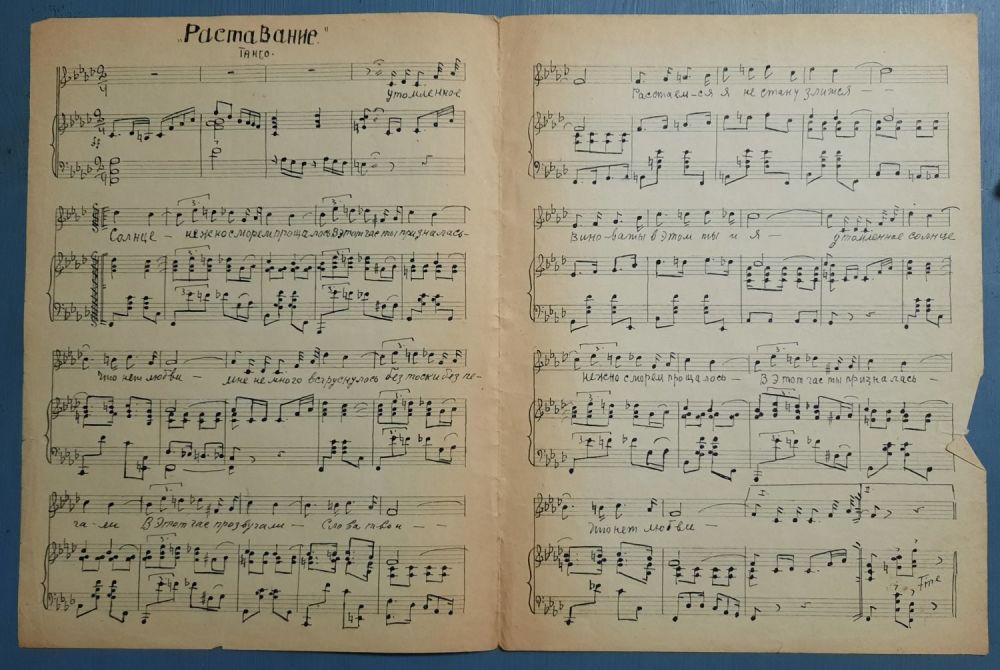 „Раставание."
Танго.
утомленное
Солнце – нежно с морем прощалось В этот час ты призналась-
Что нет любви – мне немного взгруснулось без тоски без пе-
га-ли В этот час прозвучали – Слова твои – –
Расстаем-ся я не стану злится – –
Вино-ваты в этом ты и я – утомленное солнце
нежно с морем прощалось – В этот час ты призналась –
Что нет любви –
Fine